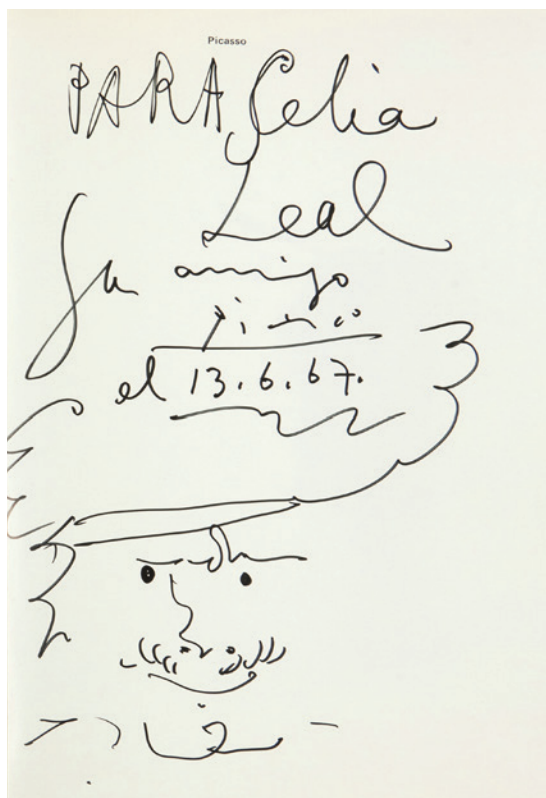 Picasso
PARA Celia
Leal
Su amigo
Picasso
el 13.6.67.